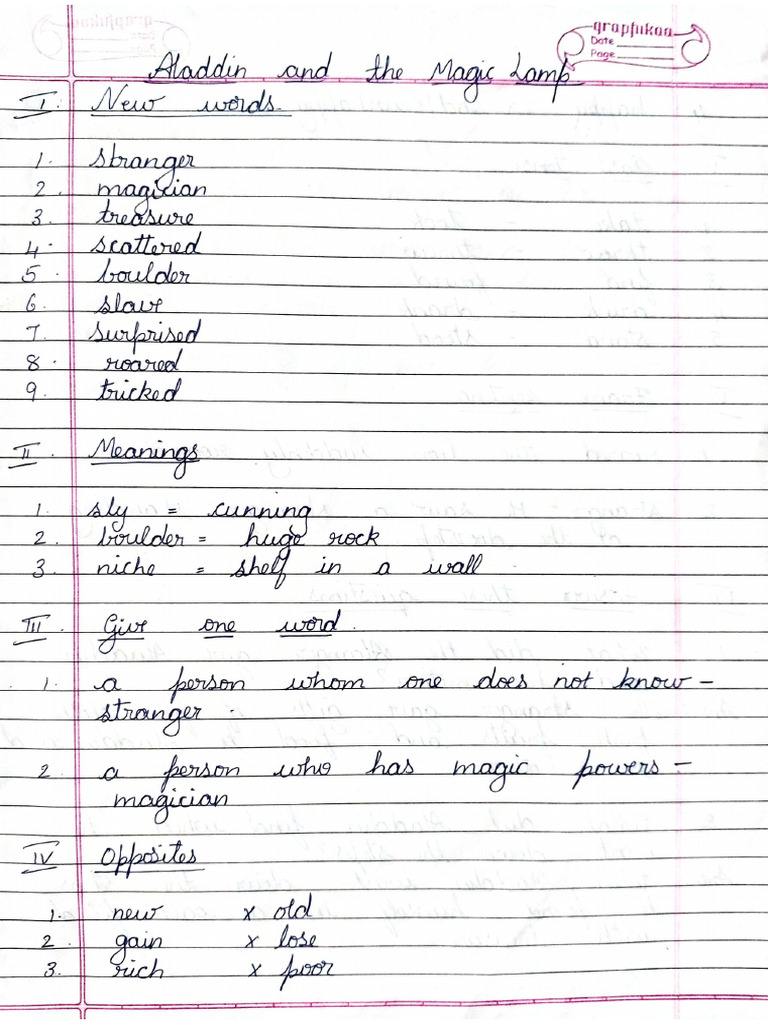 grapfukaa
Date
Page
Aladdin and the Magic Lamp
I. New words.
1. stranger
2. magician
3. treasure
4. scattered
5. boulder
6. slave
7. surprised
8. roared
9. tricked
II. Meanings
1. sly = cunning
2. boulder = huge rock
3. niche = shelf in a wall
III. Give one word.
1. a person whom one does not know –
stranger.
2. a person who has magic powers –
magician
IV Opposites
1. new x old
2. gain x lose
3. rich x poor